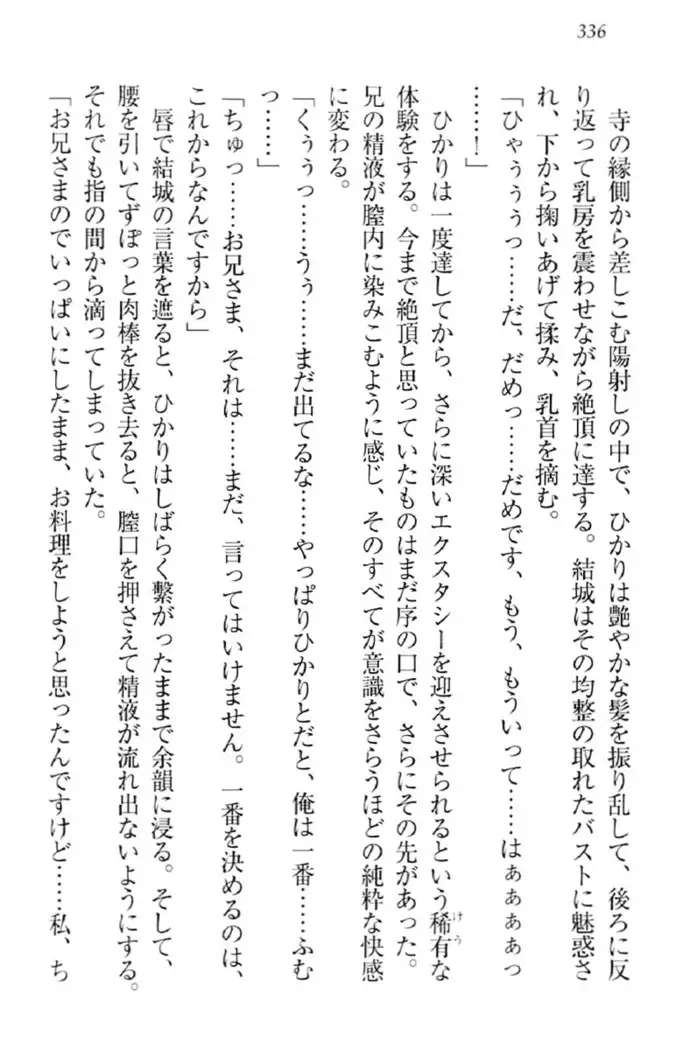 336
寺の縁側から差しこむ陽射しの中で、ひかりは艶やかな髪を振り乱して、後ろに反
り返って乳房を震わせながら絶頂に達する。結城はその均整の取れたバストに魅惑さ
れ、下から掬いあげて揉み、乳首を摘む。
「ひゃぅぅぅっ……だ、だめっ……だめです、もう、もういって……はぁぁぁぁっ
……！」
ひかりは一度達してから、さらに深いエクスタシーを迎えさせられるという稀有な
体験をする。今まで絶頂と思っていたものはまだ序の口で、さらにその先があった。
兄の精液が膣内に染みこむように感じ、そのすべてが意識をさらうほどの純粋な快感
に変わる。
「くぅぅっ……うぅ……まだ出てるな……やっぱりひかりとだと、俺は一番……ふむ
っ……」
「ちゅっ……お兄さま、それは……まだ、言ってはいけません。一番を決めるのは、
これからなんですから」
唇で結城の言葉を遮ると、ひかりはしばらく繋がったままで余韻に浸る。そして、
腰を引いてずぽっと肉棒を抜き去ると、膣口を押さえて精液が流れ出ないようにする。
それでも指の間から滴ってしまっていた。
「お兄さまのでいっぱいにしたまま、お料理をしようと思ったんですけど……私、ち